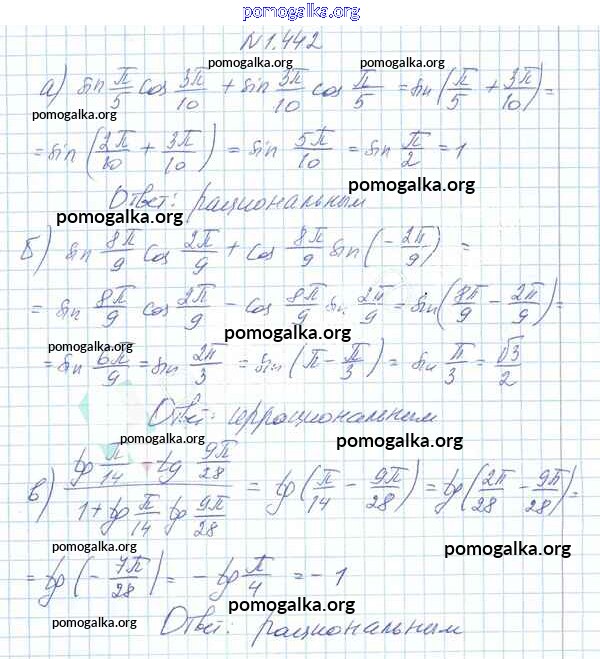 pomogalka.org
N 1.442
а) sin π/5 cos 3π/10 + sin 3π/10 cos π/5 = sin (π/5 + 3π/10) =
pomogalka.org
pomogalka.org
= sin (2π/10 + 3π/10) = sin 5π/10 = sin π/2 = 1
pomogalka.org
Ответ: рациональным
pomogalka.org
б) sin 8π/9 cos 2π/9 + cos 8π/9 sin (- 2π/9) =
= sin 8π/9 cos 2π/9 - cos 8π/9 sin 2π/9 = sin (8π/9 - 2π/9) =
pomogalka.org
pomogalka.org
= sin 6π/9 = sin 2π/3 = sin (π - π/3) = sin π/3 = √3/2
Ответ: иррациональным
pomogalka.org
pomogalka.org
в) (tg π/14 - tg 9π/28)/(1 + tg π/14 tg 9π/28) = tg (π/14 - 9π/28) = tg (2π/28 - 9π/28) =
pomogalka.org
pomogalka.org
= tg (- 7π/28) = - tg π/4 = - 1
pomogalka.org
pomogalka.org
Ответ: рациональным